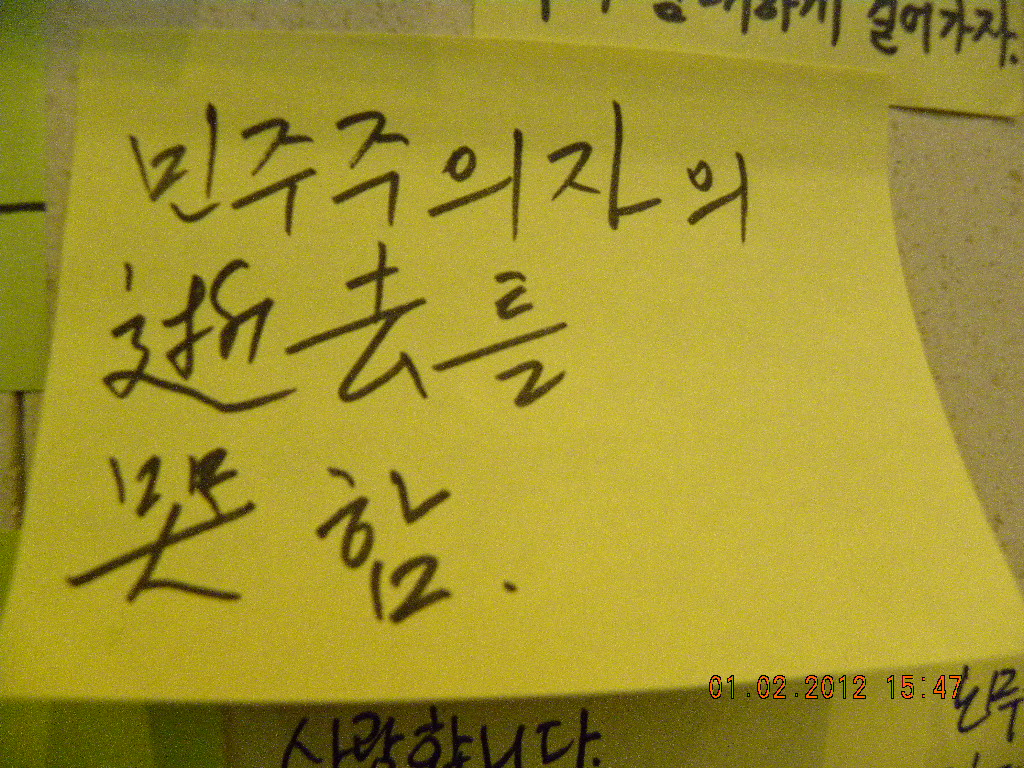 하게 걸어가자.
민주주의자의
逝去를
哭 함.
01.02.2012 15:47
사랑합니다.